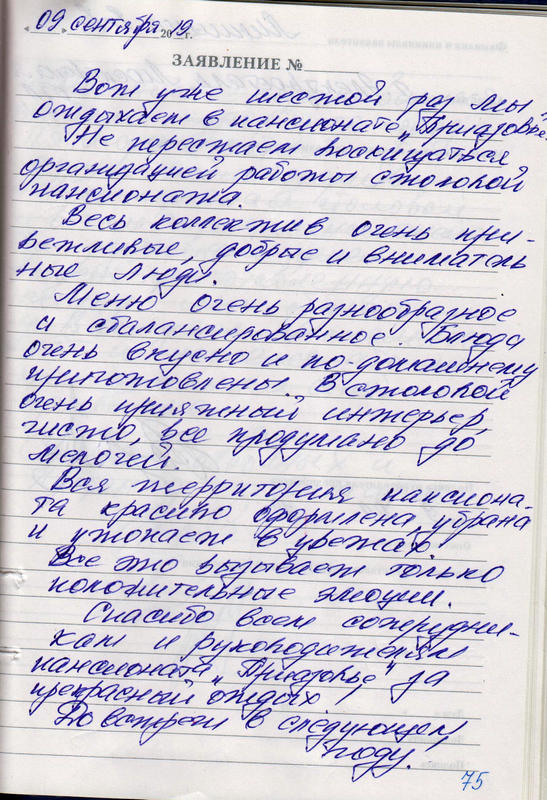 «09» сентября 2019 г.
ЗАЯВЛЕНИЕ №
Вот уже шестой раз мы
отдыхаем в пансионате „Приазовье".
Не перестаем восхищаться
организацией работы столовой
пансионата.
Весь коллектив очень при-
ветливые, добрые и вниматель
ные люди.
Меню очень разнообразное
и сбалансированное. Блюда
очень вкусно и по-домашнему
приготовлены. В столовой
очень приятный интерьер,
чисто, все продумано до
мелочей.
Вся территория пансиона-
та красиво оформлена, убрана
и утопает в цветах.
Все это вызывает только
положительные эмоции.
Спасибо всем сотрудни-
кам и руководителям
пансионата „Приазовье" за
прекрасный отдых!
До встречи в следующем
году.
75